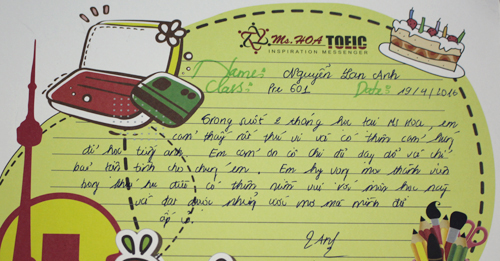 Ms. HOA TOEIC
INSPIRATION MESSENGER
Name: Nguyễn Lan Anh
Class: Pre 601 Date: 19/4/2016
Trong suốt 2 tháng học tại Ms Hoa, em
cảm thấy rất thú vị và có thêm cảm hứng
để học tiếng anh. Em cảm ơn cô chị đã dạy dỗ và chỉ
bảo tận tình cho chúng em. Em hy vọng mọi thành viên
trong khóa học đều có thêm niềm vui với môn học này
và đạt được những ước mơ mà mình đã
ấp ủ.
LAnh